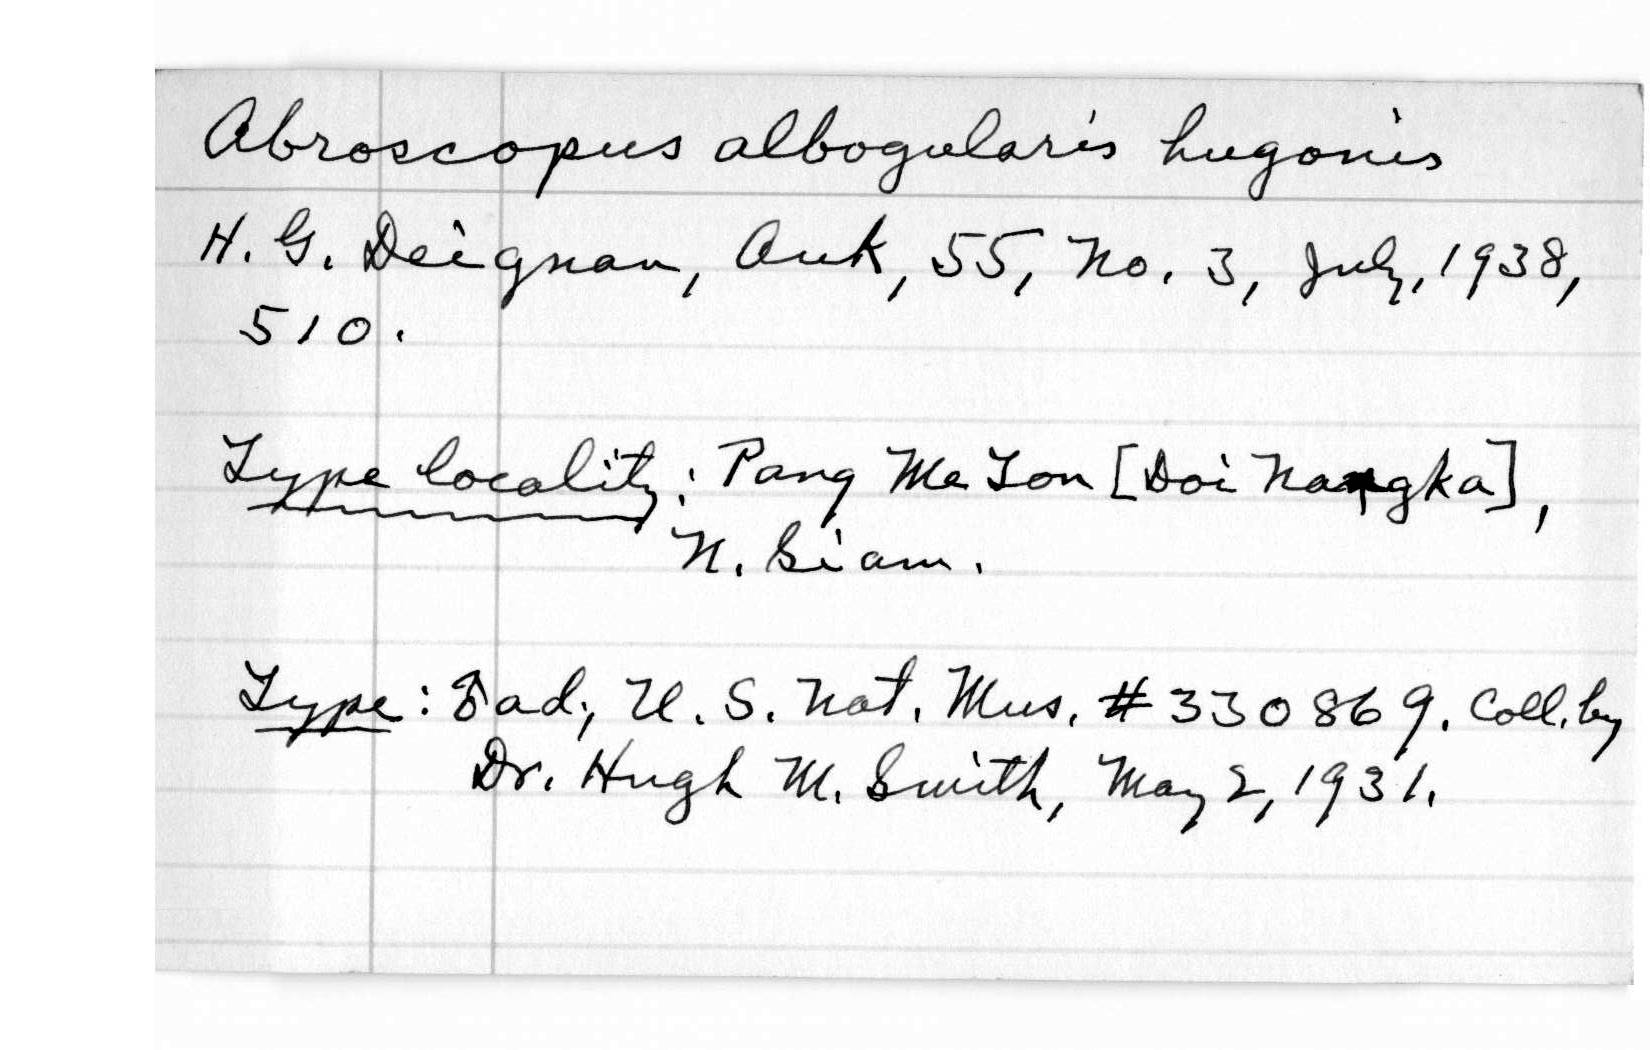 Abroscopus albogularis hugonis
H. G. Deignan, Auk, 55, No. 3, July, 1938,
510.
Type locality: Pang Me Ton [Doi Nangka],
N. Siam.
Type: ♂ ad., U. S. Nat. Mus. #330869. Coll. by
Dr. Hugh M. Smith, May 2, 1931.